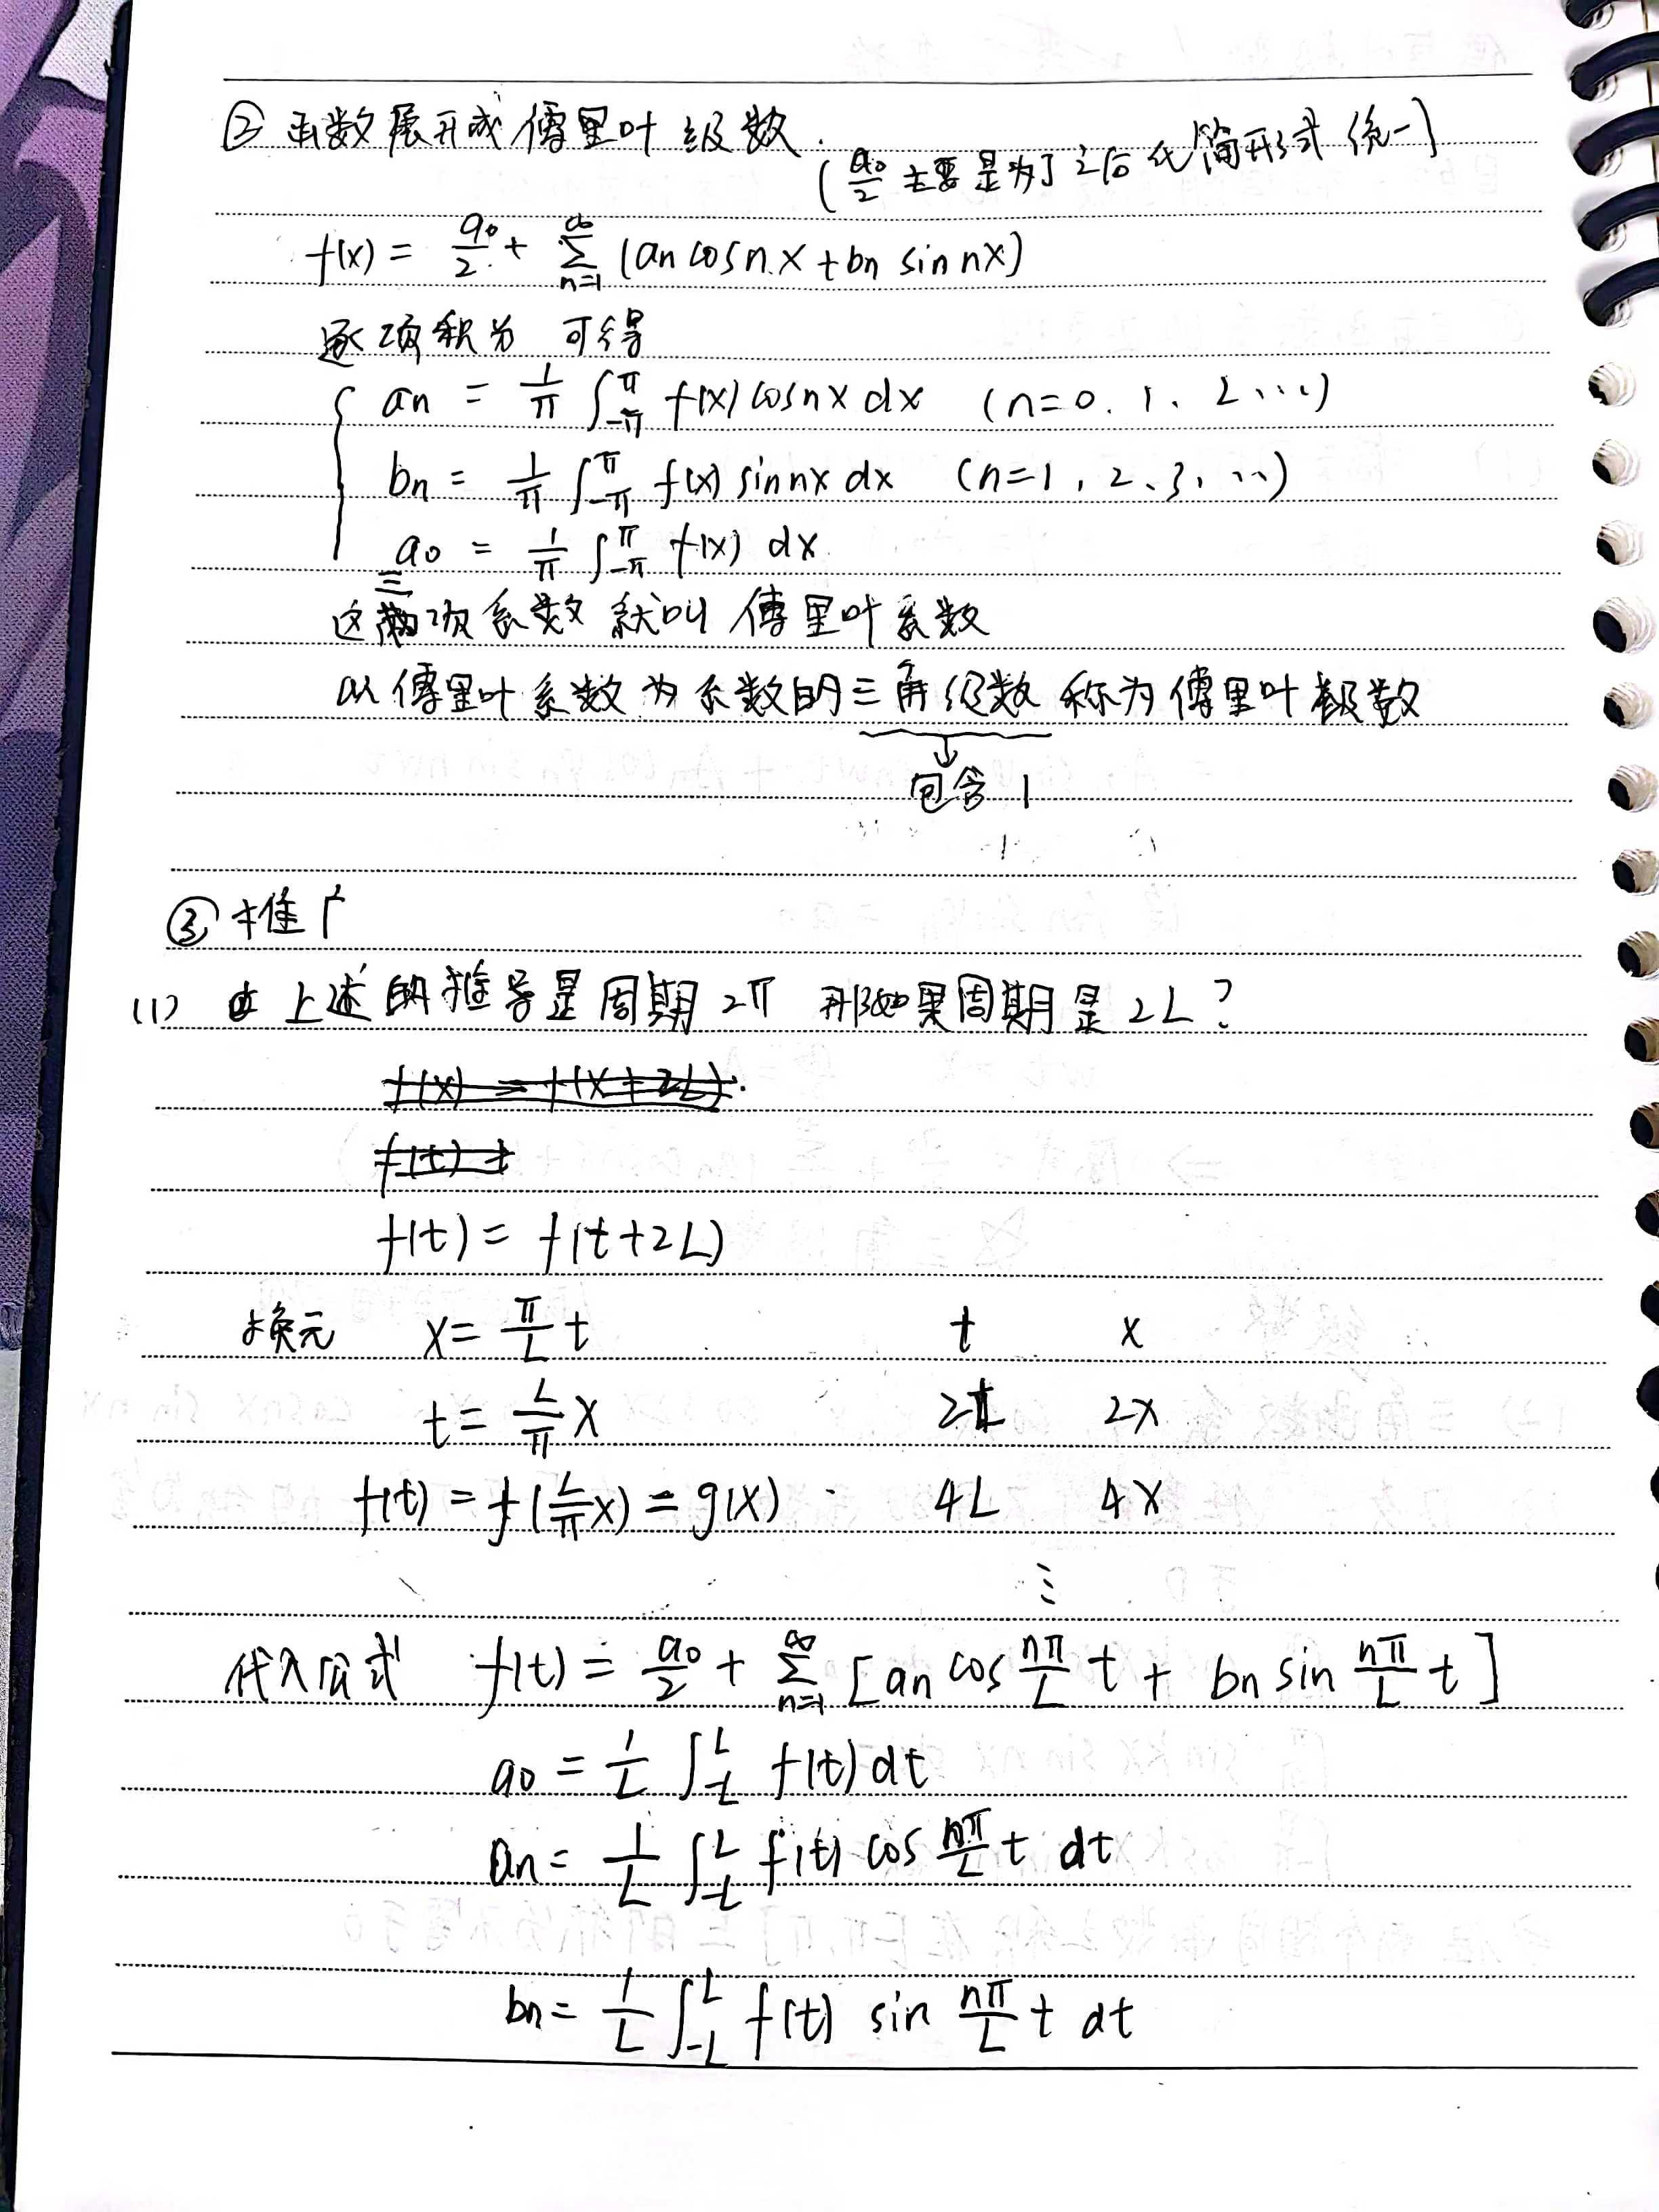 ② 函数展开成傅里叶级数.
(a₀/2 主要是为了之后化简形式统一)
f(x) = a₀/2 + ∑_{n=1}^{∞} (an cosnx + bn sin nx)
逐项积分 可得
an = 1/π ∫_{-π}^{π} f(x) cosnx dx (n=0. 1、2 ...)
bn = 1/π ∫_{-π}^{π} f(x) sinnx dx (n=1, 2、3, ...)
a₀ = 1/π ∫_{-π}^{π} f(x) dx
这三项系数就叫 傅里叶系数
以傅里叶系数为系数的三角级数 称为傅里叶级数
↓
包含 1
③ 推广
(1) 上述的推导是周期 2π 那如果周期是 2L ?
f(x) = f(x+2L)
f(t) =
f(t) = f(t+2L)
换元 x = π/L t t x
t = L/π x 2L 2x
f(t) = f(L/π x) = g(x) 4L 4x
⋮
代入公式 f(t) = a₀/2 + ∑_{n=1}^{∞} [an cos nπ/L t + bn sin nπ/L t]
a₀ = 1/L ∫_{-L}^{L} f(t) dt
an = 1/L ∫_{-L}^{L} f(t) cos nπ/L t dt
bn = 1/L ∫_{-L}^{L} f(t) sin nπ/L t dt